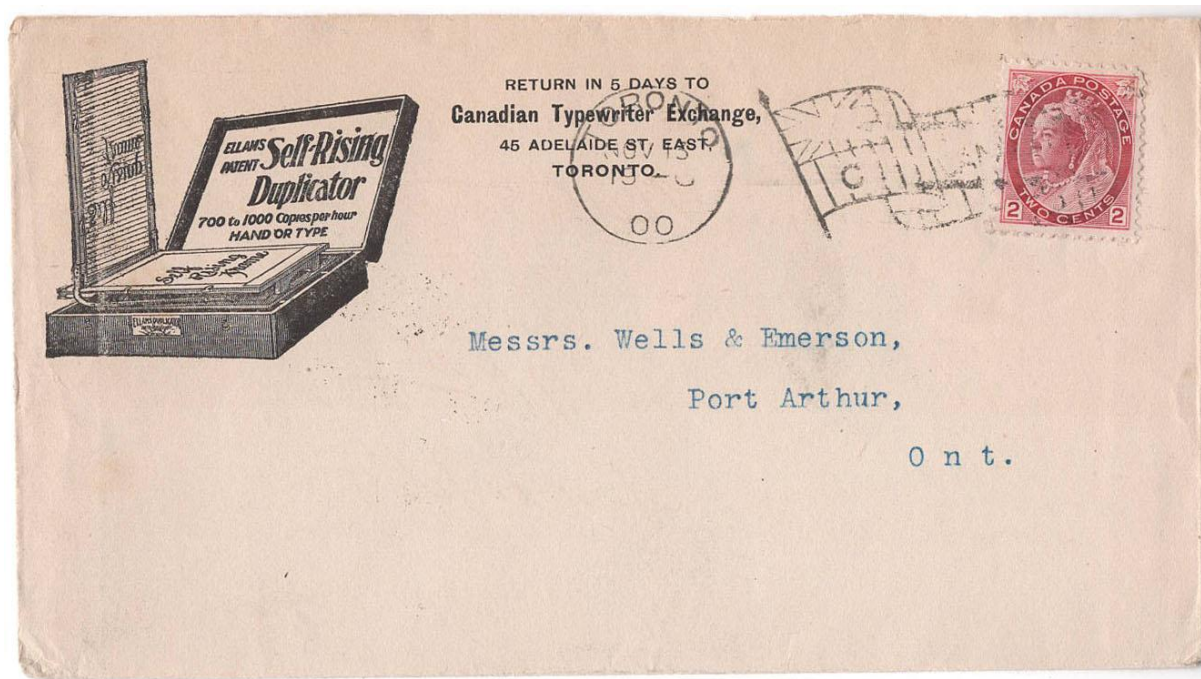 ELLAMS
PATENT Self-Rising
Duplicator
700 to 1000 Copies per hour
HAND OR TYPE
Self
Rising
Frame
ELLAMS DUPLICATOR
RETURN IN 5 DAYS TO
Canadian Typewriter Exchange,
45 ADELAIDE ST. EAST,
TORONTO.
TORONTO
NOV 13
00
C
CANADA POSTAGE
2 TWO CENTS 2
Messrs. Wells & Emerson,
Port Arthur,
Ont.